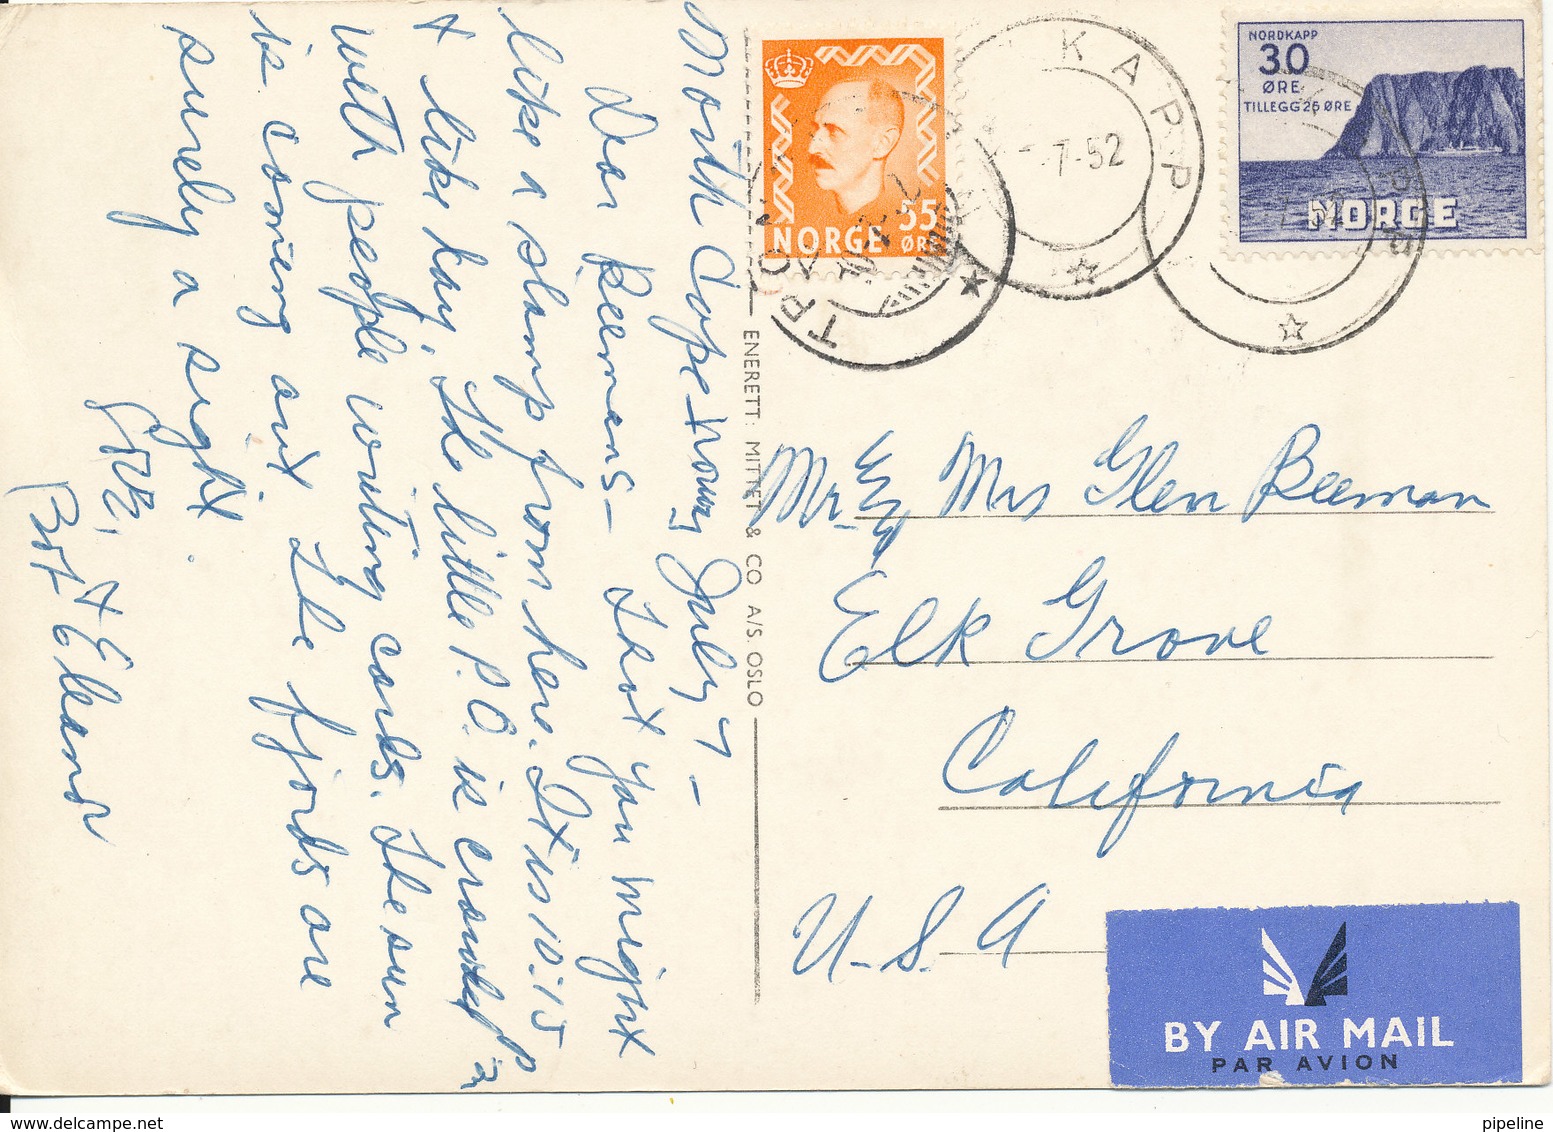 North Cape - Norway July 7 -
Dear Beemans - Thot you might
like a stamp from here. It is 10:15
& like day. The little P.O. is crowded
with people writing cards. The sun
is coming out. The fjords are
surely a sight.
Bert & Eleanor
ENERETT: MITTET & CO A/S. OSLO
NORGE
55
ØRE
KAPP
7-52
NORDKAPP
30
ØRE
TILLEGG 25 ØRE
NORGE
Mr. & Mrs Glen Beeman
Elk Grove
California
U.S.A
BY AIR MAIL
PAR AVION
pipeline